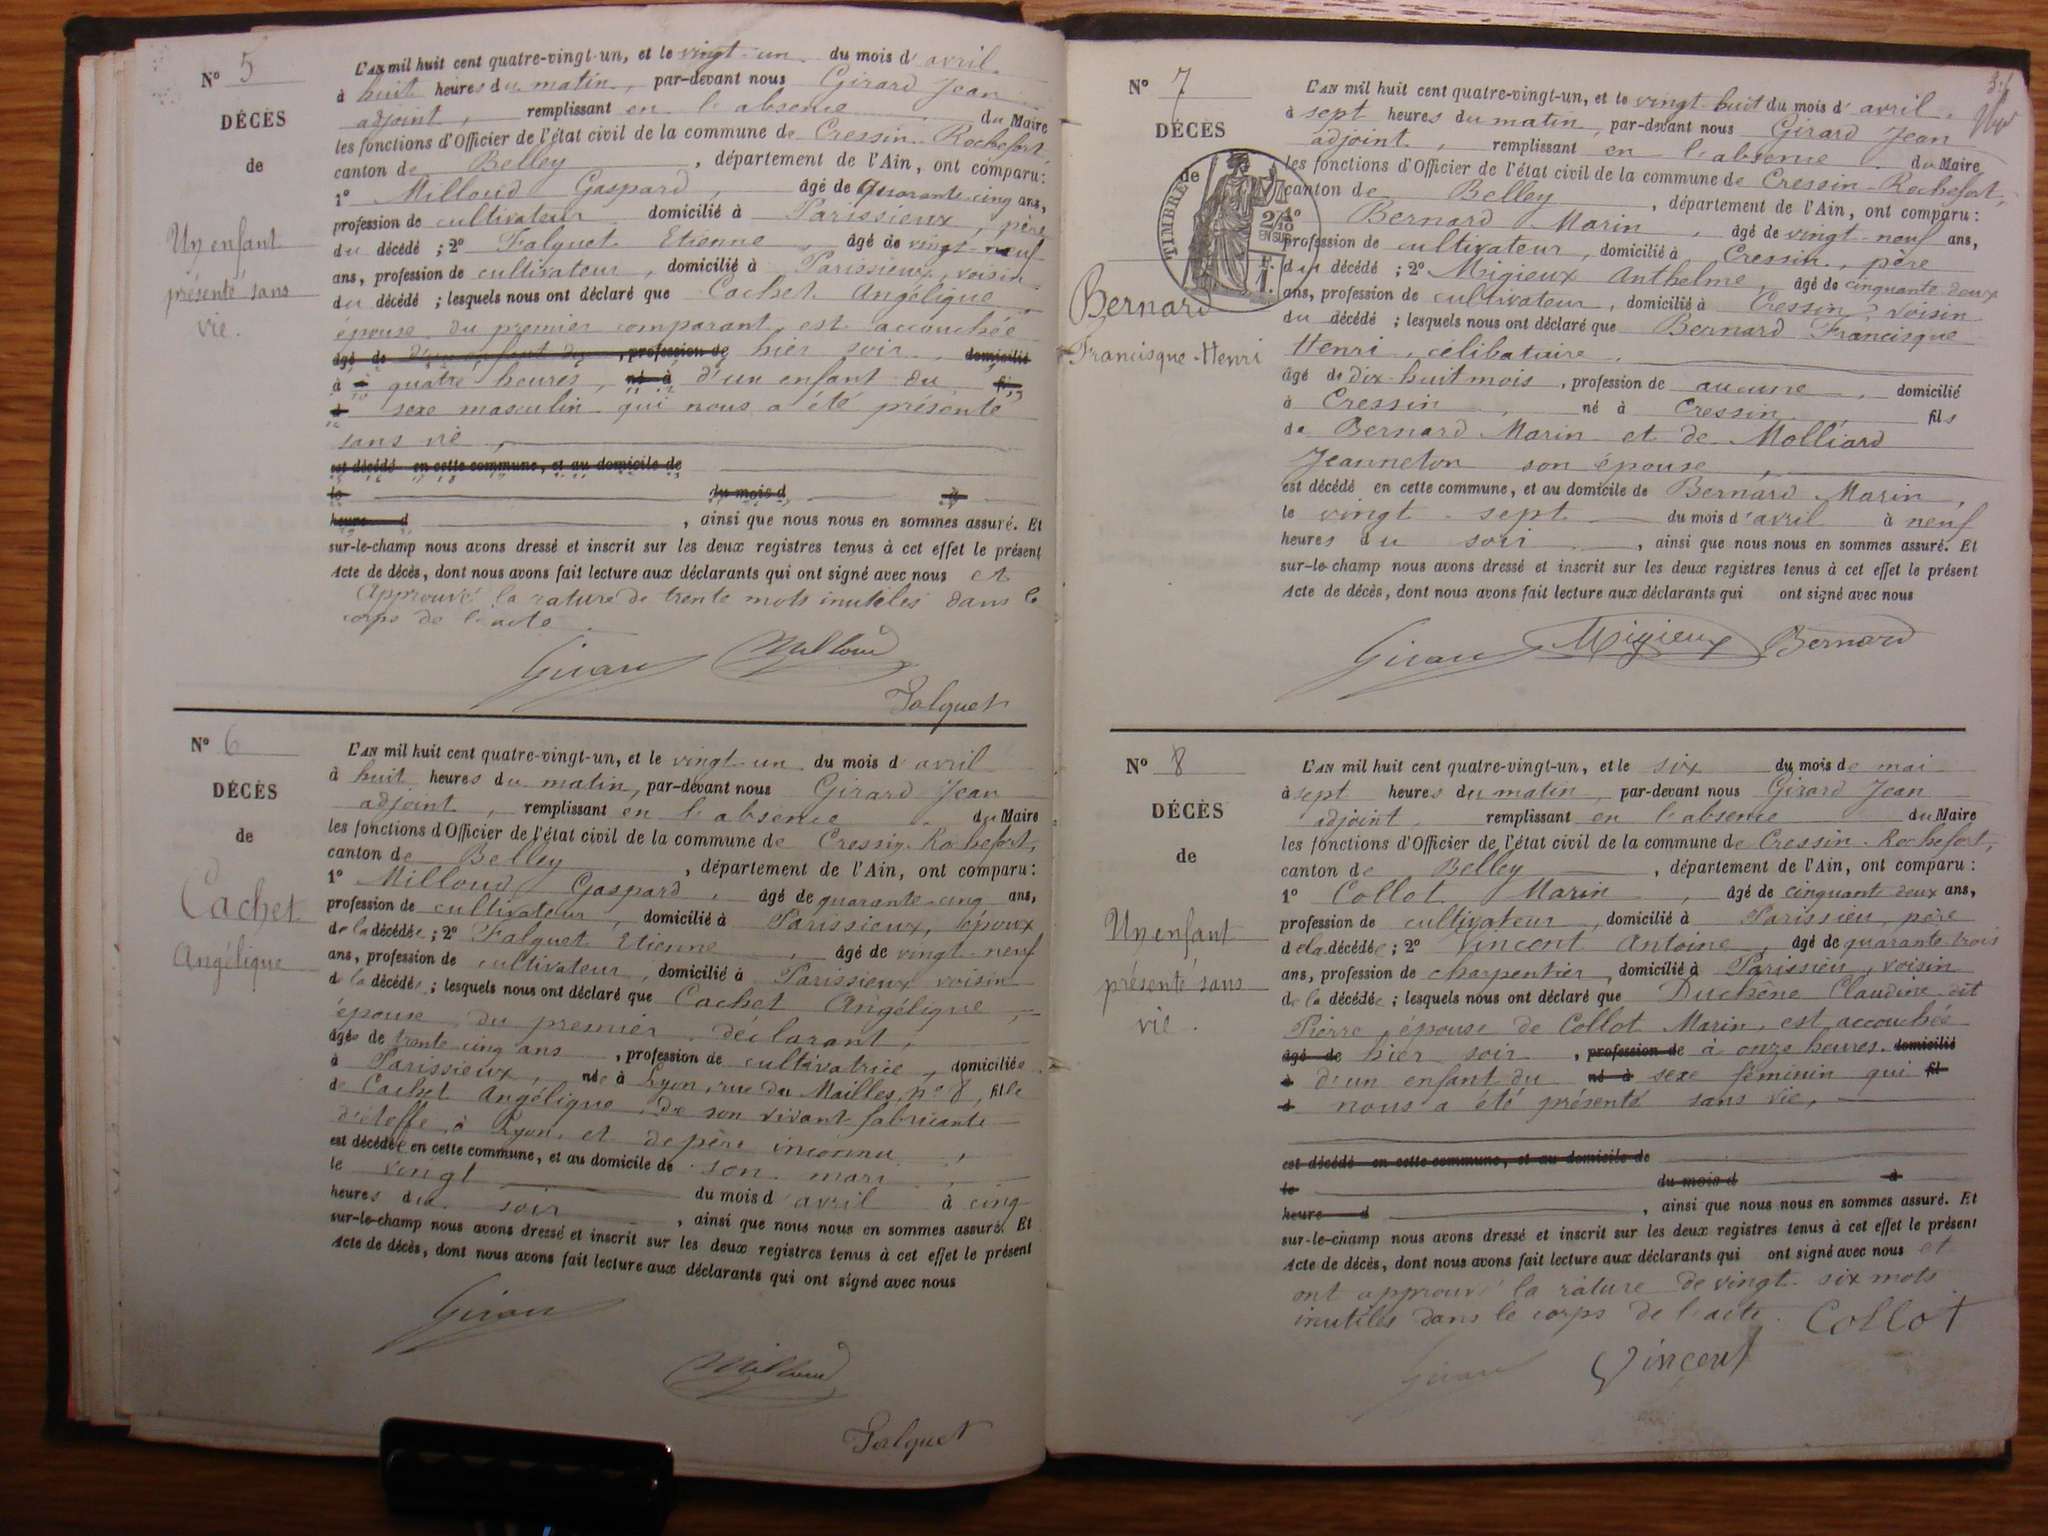 N° 5
DÉCÈS
de
Un enfant
présenté sans
vie.
L'AN mil huit cent quatre-vingt-un, et le vingt-un du mois d'avril
à huit heures du matin, par-devant nous Girard Jean
adjoint, remplissant en l'absence du Maire
les fonctions d'Officier de l'état civil de la commune de Cressin-Rochefort,
canton de Belley, département de l'Ain, ont comparu:
1° Milloud Gaspard, âgé de quarante-cinq ans,
profession de cultivateur domicilié à Parissieux, père
du décédé; 2° Falquet Etienne, âgé de vingt-neuf
ans, profession de cultivateur, domicilié à Parissieux, voisin
du décédé; lesquels nous ont déclaré que Cachet Angélique
épouse du premier comparant est accouchée
âgé de d'un enfant du, profession de hier soir, domicilié
à quatre heures, né à d'un enfant du fils
d sexe masculin qui nous a été présenté
sans vie,
est décédé en cette commune, et au domicile de
le du mois d à
heure d, ainsi que nous nous en sommes assuré. Et
sur-le-champ nous avons dressé et inscrit sur les deux registres tenus à cet effet le présent
Acte de décès, dont nous avons fait lecture aux déclarants qui ont signé avec nous et
approuvé la rature de trente mots inutiles dans le
corps de l'acte.
Girard Milloud
Falquet
N° 6
DÉCÈS
de
Cachet
Angélique
L'AN mil huit cent quatre-vingt-un, et le vingt-un du mois d'avril
à huit heures du matin, par-devant nous Girard Jean
adjoint, remplissant en l'absence du Maire
les fonctions d'Officier de l'état civil de la commune de Cressin-Rochefort,
canton de Belley, département de l'Ain, ont comparu:
1° Milloud Gaspard, âgé de quarante-cinq ans,
profession de cultivateur, domicilié à Parissieux, époux
de la décédée; 2° Falquet Etienne, âgé de vingt-neuf
ans, profession de cultivateur, domicilié à Parissieux voisin
de la décédée; lesquels nous ont déclaré que Cachet Angélique,
épouse du premier déclarant,
âgée de trente cinq ans, profession de cultivatrice, domiciliée
à Parissieux, née à Lyon, rue du Mailles, n° 8, fille
de Cachet Angélique, de son vivant fabricante
d'étoffe à Lyon, et de père inconnu,
est décédée en cette commune, et au domicile de son mari,
le vingt du mois d'avril à cinq
heures du soir, ainsi que nous nous en sommes assuré. Et
sur-le-champ nous avons dressé et inscrit sur les deux registres tenus à cet effet le présent
Acte de décès, dont nous avons fait lecture aux déclarants qui ont signé avec nous
Girard
Milloud
Falquet
N° 7
DÉCÈS
de
TIMBRE
2/10
EN SUS
Bernard
Francisque-Henri
L'AN mil huit cent quatre-vingt-un, et le vingt-huit du mois d'avril,
à sept heures du matin, par-devant nous Girard Jean
adjoint, remplissant en l'absence du Maire
les fonctions d'Officier de l'état civil de la commune de Cressin-Rochefort,
canton de Belley, département de l'Ain, ont comparu:
1° Bernard Marin, âgé de vingt-neuf ans,
profession de cultivateur, domicilié à Cressin, père
du décédé; 2° Migieux Anthelme, âgé de cinquante deux
ans, profession de cultivateur, domicilié à Cressin, voisin
du décédé; lesquels nous ont déclaré que Bernard Francisque
Henri, célibataire,
âgé de dix-huit mois, profession de aucune, domicilié
à Cressin, né à Cressin, fils
de Bernard Marin et de Molliard
Jeanneton son épouse,
est décédé en cette commune, et au domicile de Bernard Marin,
le vingt-sept du mois d'avril à neuf
heures du soir, ainsi que nous nous en sommes assuré. Et
sur-le-champ nous avons dressé et inscrit sur les deux registres tenus à cet effet le présent
Acte de décès, dont nous avons fait lecture aux déclarants qui ont signé avec nous
Girard Migieux Bernard
N° 8
DÉCÈS
de
Un enfant
présenté sans
vie.
L'AN mil huit cent quatre-vingt-un, et le six du mois de mai
à sept heures du matin, par-devant nous Girard Jean
adjoint remplissant en l'absence du Maire
les fonctions d'Officier de l'état civil de la commune de Cressin-Rochefort,
canton de Belley, département de l'Ain, ont comparu:
1° Collot Marin, âgé de cinquante deux ans,
profession de cultivateur, domicilié à Parissieu, père
de la décédée; 2° Vincent Antoine, âgé de quarante-trois
ans, profession de charpentier, domicilié à Parissieu, voisin
de la décédée; lesquels nous ont déclaré que Duchêne Claudine dit
Pierre, épouse de Collot Marin, est accouchée
âgé de hier soir, profession de à onze heures, domicilié
à d'un enfant du né à sexe féminin qui fil
d nous a été présenté sans vie,
est décédé en cette commune, et au domicile de
le du mois d à
heure d, ainsi que nous nous en sommes assuré. Et
sur-le-champ nous avons dressé et inscrit sur les deux registres tenus à cet effet le présent
Acte de décès, dont nous avons fait lecture aux déclarants qui ont signé avec nous et
ont approuvé la rature de vingt-six mots
inutiles dans le corps de l'acte. Collot
Girard Vincent